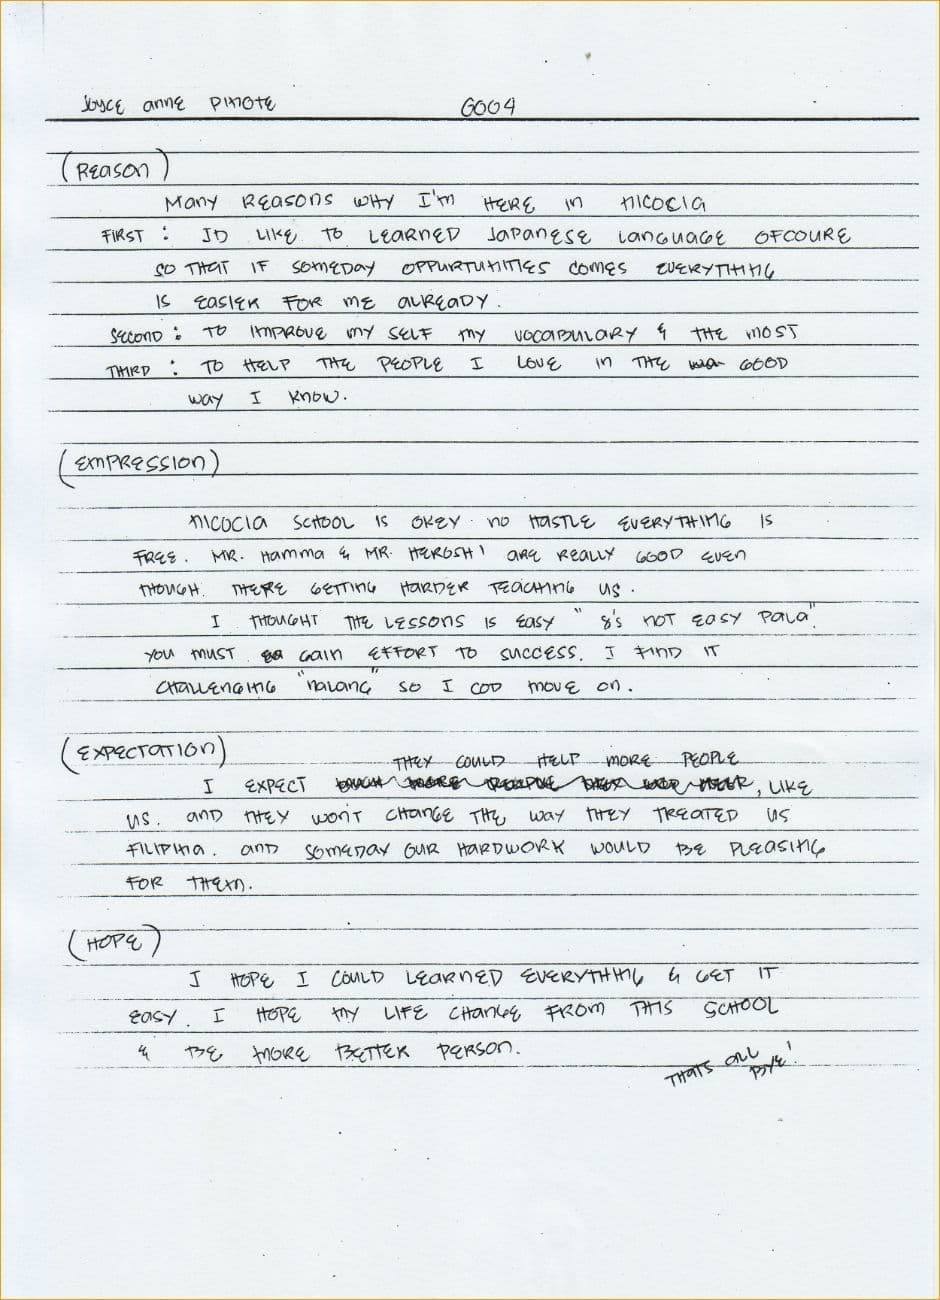 Joyce anne Pinote G004
(Reason)
Many Reasons why I'm HERE in nicocia
FIRST : ID LIKE TO LEARNED Japanese Language OFCOURE
SO THAT IF SOMEDAY OPPURTUNITIES comes EVERYTHING
IS EASIER FOR me ALREADY.
SECOND : TO IMPROVE MY SELF MY VOCABULARY & THE MOST
THIRD : TO HELP THE PEOPLE I LOVE in THE GOOD
way I know.
(EMPRESSION)
NICOCIA SCHOOL IS OKEY. no HASTLE EVERYTHING IS
FREE. MR. Hamma & MR. HEROSHI ARE REALLY GOOD EVEN
THOUGH. THERE GETTING HARDER TEACHING US.
I THOUGHT THE LESSONS IS Easy " 8's NOT EASY Pala".
YOU MUST GAIN EFFORT TO SUCCESS. I FIND IT
CHALLENGING "nalang" SO I COD MOVE ON.
(EXPECTATION)
THEY COULD HELP MORE PEOPLE
I EXPECT , LIKE
US. AND THEY WONT CHANGE THE way THEY TREATED US
FILIPINA. AND SOMEDAY OUR HARDWORK WOULD BE PLEASING
FOR THEM.
(HOPE)
I HOPE I COULD LEARNED EVERYTHING & GET IT
EASY. I HOPE MY LIFE CHANGE FROM THIS SCHOOL
& BE MORE BETTER PERSON.
THATS ALL
BYE!